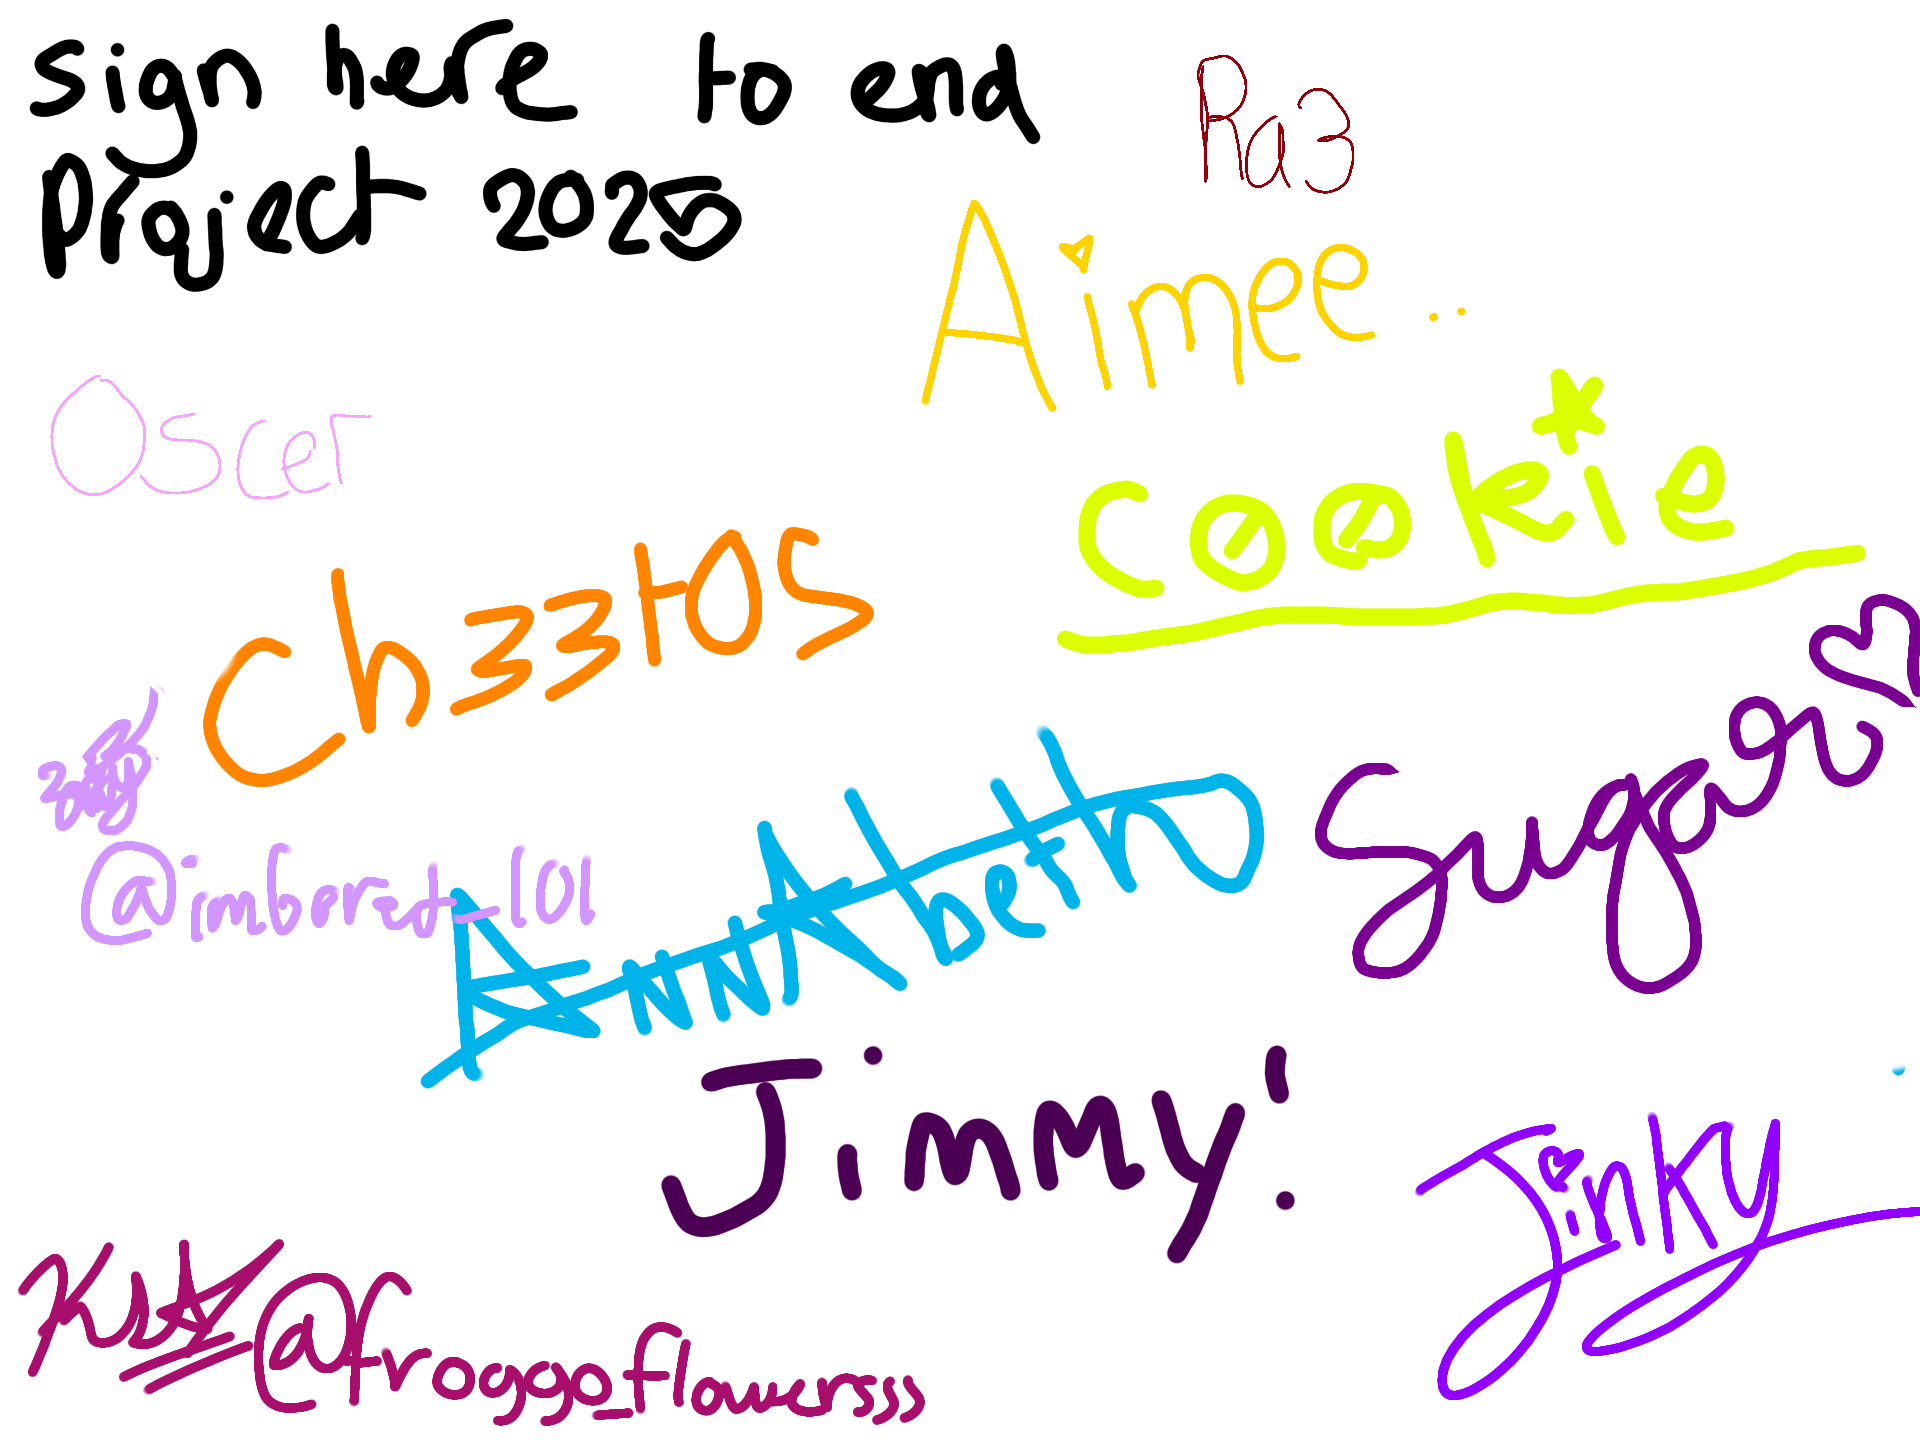 sign here to end
Project 2025
Ra3
Aimee..
Oscer
cookie
Ch33tOS
sugar
@imboret_101
AnnAbeth
Jimmy!
Jinky
@froggo_flowersss